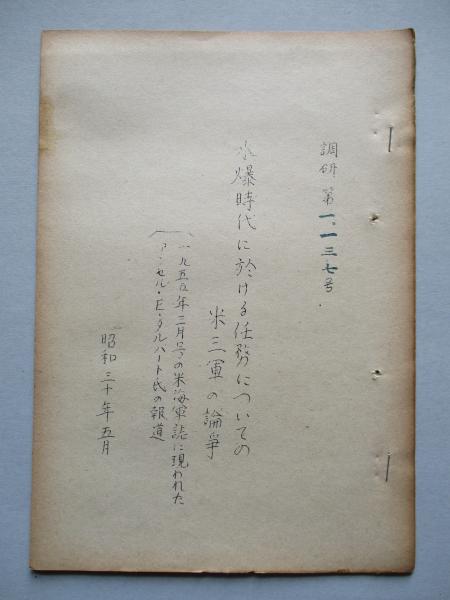 調研 第一、一三七号
水爆時代に於ける任務についての
米三軍の論爭
一九五五年二月号の米海軍誌に現われた
アンセル・E・タルバート氏の報道
昭和三十年五月